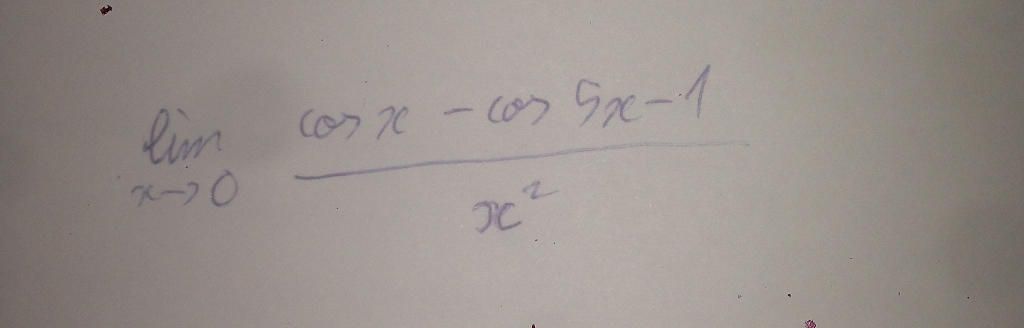 lim
x→0
cos x - cos 5x - 1
x²